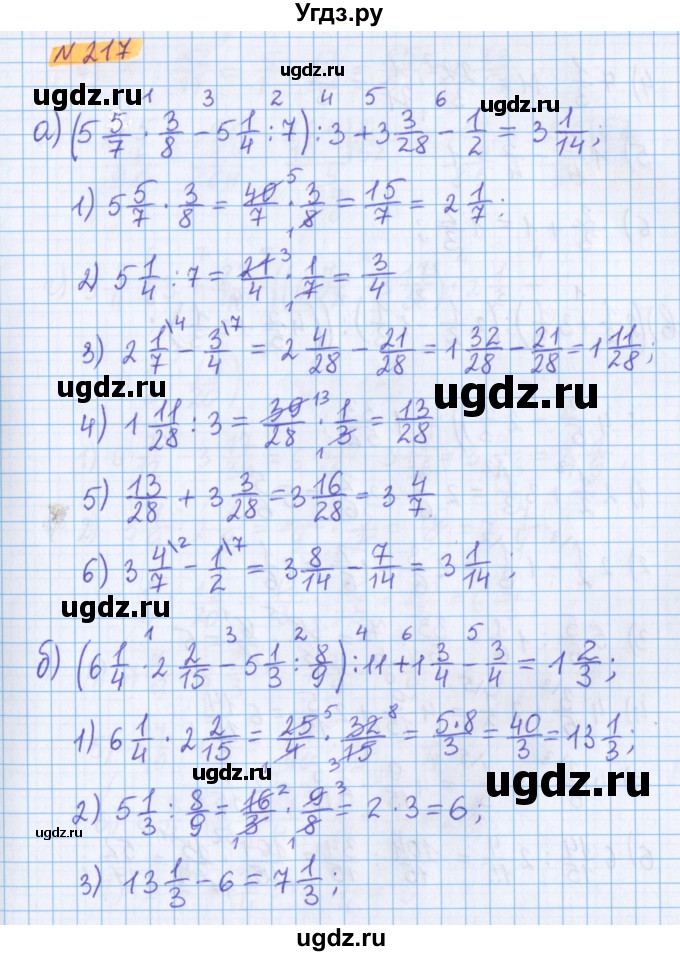 Угдз.ру
N 217
ugdz.ru ugdz.ru ugdz.ru
1 3 2 4 5 6
а) (5 5/7 · 3/8 − 5 1/4 : 7) : 3 + 3 3/28 − 1/2 = 3 1/14;
1) 5 5/7 · 3/8 = 40/7 ⁵ · 3/8 ₁ = 15/7 = 2 1/7;
ugdz.ru
2) 5 1/4 : 7 = 21/4 ³ · 1/7 ₁ = 3/4
3) 2 1/7 \4 − 3/4 \7 = 2 4/28 − 21/28 = 1 32/28 − 21/28 = 1 11/28;
ugdz.ru ugdz.ru
4) 1 11/28 : 3 = 39/28 ¹³ · 1/3 ₁ = 13/28
5) 13/28 + 3 3/28 = 3 16/28 = 3 4/7
6) 3 4/7 \2 − 1/2 \7 = 3 8/14 − 7/14 = 3 1/14;
ugdz.ru ugdz.ru
1 3 2 4 6 5
б) (6 1/4 · 2 2/15 − 5 1/3 : 8/9) : 11 + 1 3/4 − 3/4 = 1 2/3;
1) 6 1/4 · 2 2/15 = 25/4 ⁵ ₁ · 32/15 ⁸ ₃ = 5·8/3 = 40/3 = 13 1/3;
ugdz.ru ugdz.ru
2) 5 1/3 : 8/9 = 16/3 ² ₁ · 9/8 ³ ₁ = 2 · 3 = 6;
ugdz.ru
3) 13 1/3 − 6 = 7 1/3;
ugdz.ru
ugdz.ru